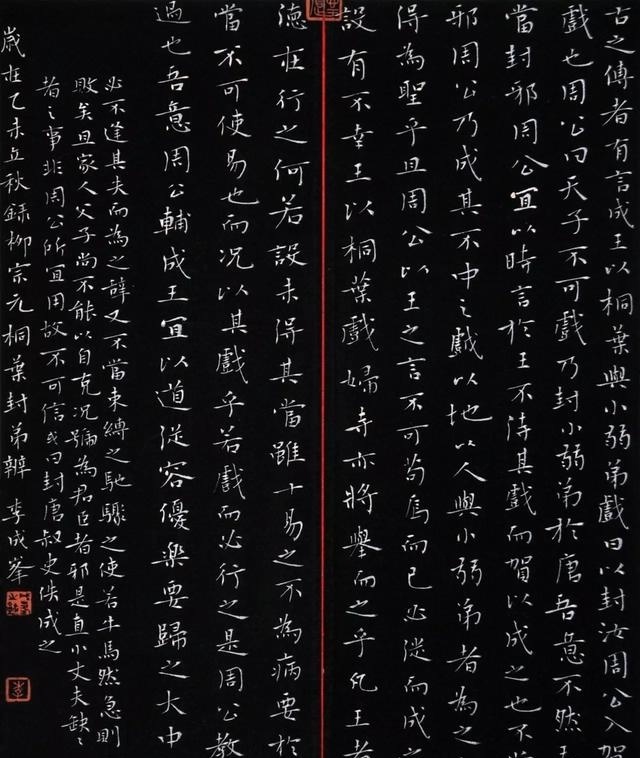 古之傳者有言成王以桐葉與小弱弟戲曰以封汝周公入賀
戲也周公曰天子不可戲乃封小弱弟於唐吾意不然王
當封邪周公宜以時言於王不待其戲而賀以成之也不
邪周公乃成其不中之戲以地以人與小弱弟者為之
得為聖乎且周公以王之言不可苟焉而已必從而成之
設有不幸王以桐葉戲婦寺亦將舉而之乎凡王者
德在行之何若設未得其當雖十易之不為病要於
當不可使易也而況以其戲乎若戲而必行之是周公教
過也吾意周公輔成王宜以道從容優樂要歸之大中
必不逢其失而為之辭又不當束縛之馳驟之使若牛馬然急則
敗矣且家人父子尚不能以自克況號為君臣者邪是直小丈夫缺缺
者之事非周公所宜用故不可信或曰封唐叔史佚成之
歲在乙未立秋録柳宗元桐葉封弟辯 李成峯
李